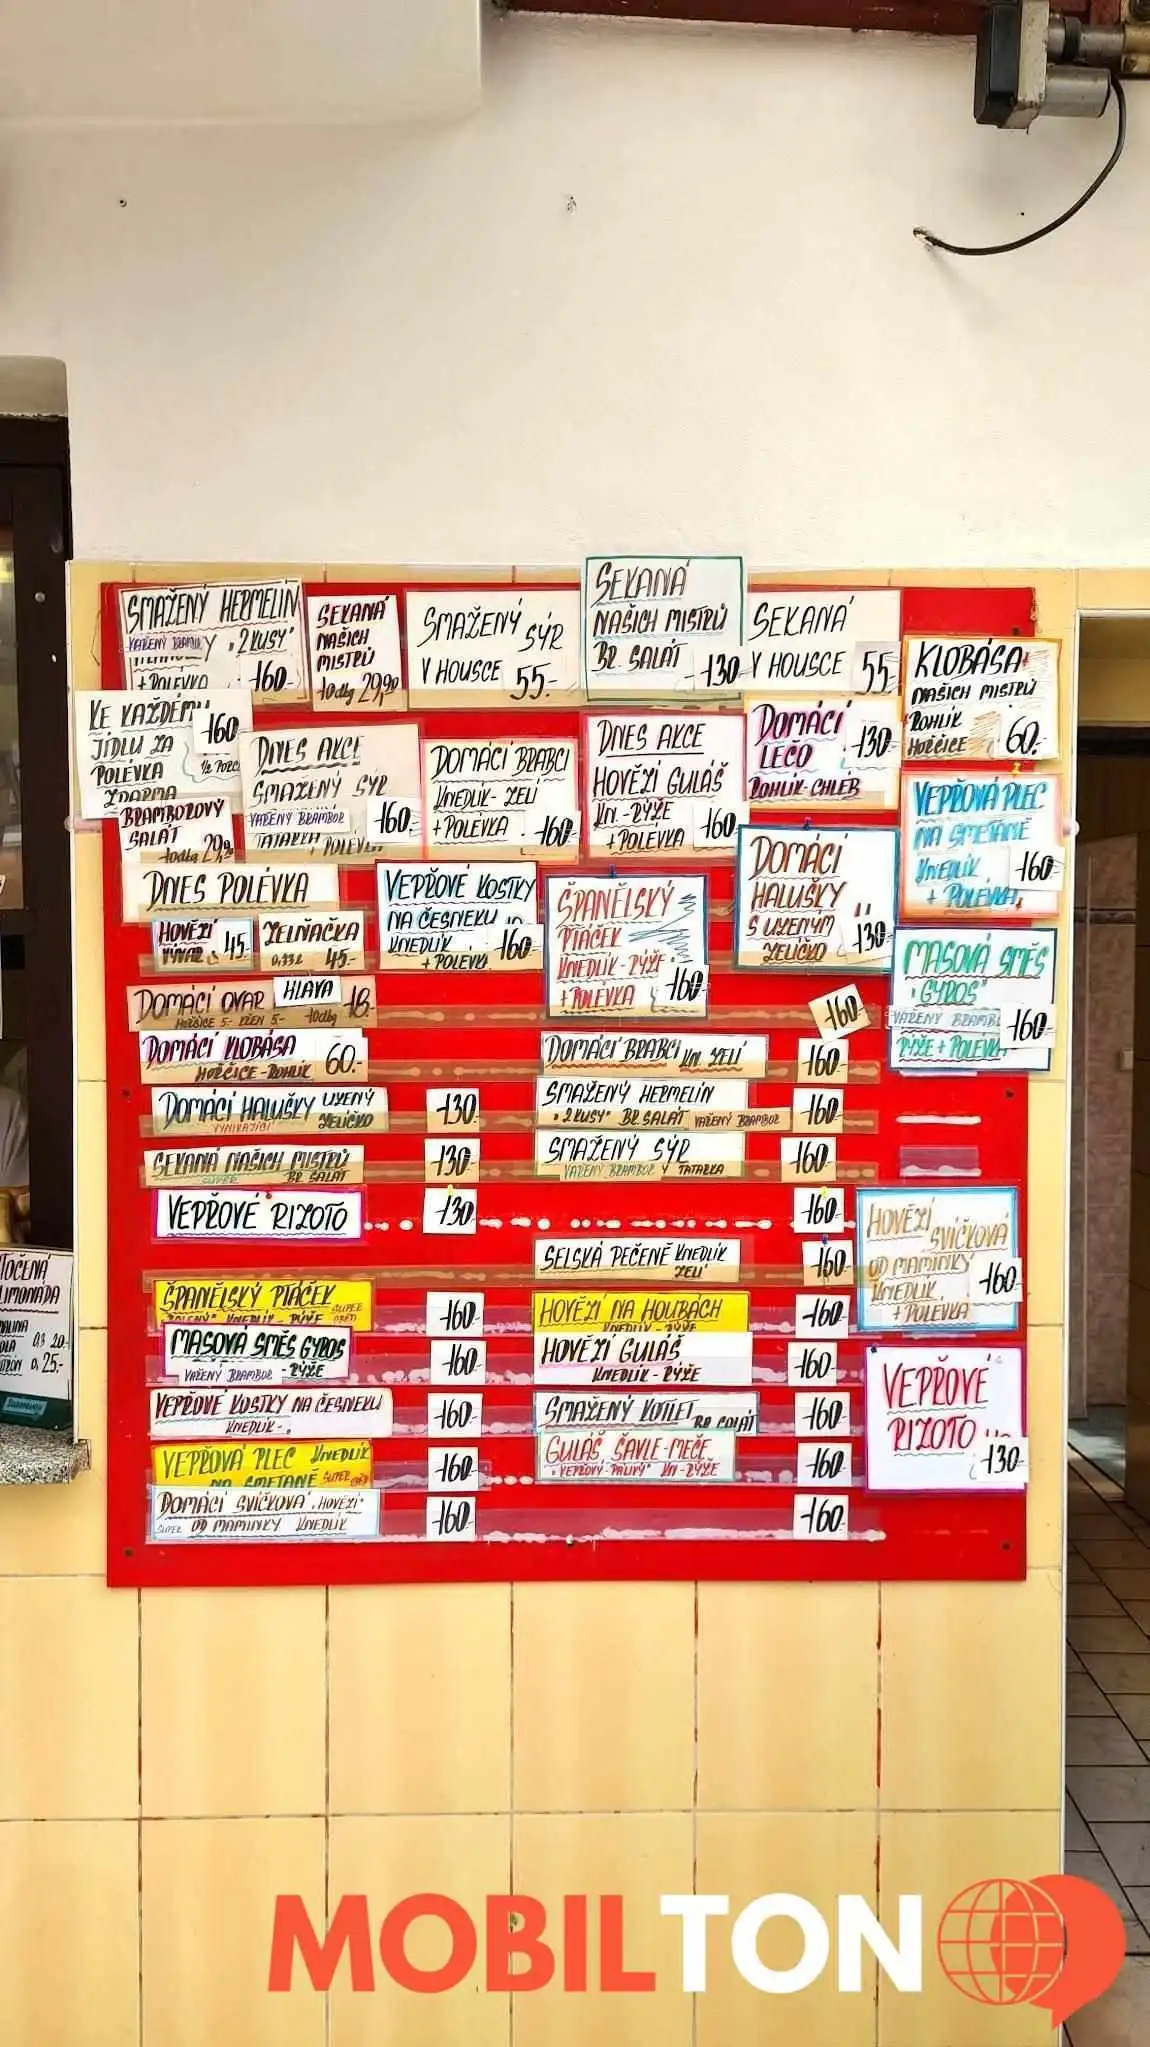 SMAŽENÝ HERMELÍN
VAŘENÝ BRAMBOR Y "2KUSY"
+POLÉVKA 160.-
SEKANÁ
NAŠICH
MISTRŮ
10dkg 29,90
SMAŽENÝ SÝR
V HOUSCE 55.-
SEKANÁ
NAŠICH MISTRŮ
BR. SALÁT 130
SEKANÁ
V HOUSCE 55.-
KLOBÁSA
NAŠICH MISTRŮ
ROHLÍK
HOŘČICE 60.-
KE KAŽDÉMU 160
JÍDLU ZA
POLÉVKA
ZDARMA
BRAMBOROVÝ
SALÁT
10dkg 29,90
DNES AKCE
SMAŽENÝ SÝR
VAŘENÝ BRAMBOR 160.-
TATARKA POLÉVKA
DOMÁCÍ BRABCI
KNEDLÍK-ZELÍ
+POLÉVKA 160
DNES AKCE
HOVĚZÍ GULÁŠ
KN.-RÝŽE
+POLÉVKA 160
DOMÁCÍ 130
LEČO
ROHLÍK-CHLÉB
VEPŘOVÁ PLEC
NA SMETANĚ
KNEDLÍK 160
+ POLÉVKA
DNES POLÉVKA
HOVĚZÍ
VÝVAR 45.-
ZELŇAČKA
0,33L 45.-
VEPŘOVÉ KOSTKY
NA ČESNEKU
KNEDLÍK 160
+ POLÉVKA
ŠPANĚLSKÝ
PTÁČEK
KNEDLÍK-RÝŽE
+POLÉVKA 160
DOMÁCÍ
HALUŠKY
S UZENÝM
ZELÍČKO 130
MASOVÁ SMĚS
"GYROS"
VAŘENÝ BRAMBOR 160
RÝŽE + POLÉVKA
DOMÁCÍ OVAR HLAVA 18.-
HOŘČICE 5- KŘEN 5- 10dkg
160
DOMÁCÍ KLOBÁSA 60.-
HOŘČICE-ROHLÍK
DOMÁCÍ BRABCI KN. ZELÍ 160
DOMÁCÍ HALUŠKY UZENÝ 130
VYNIKAJÍCÍ ZELÍČKO
SMAŽENÝ HERMELÍN 160
"2KUSY" BR.SALÁT VAŘENÝ BRAMBOR
SEKANÁ NAŠICH MISTRŮ 130
SUPER BR. SALÁT
SMAŽENÝ SÝR 160
VAŘENÝ BRAMBOR Y TATARKA
VEPŘOVÉ RIZOTO 130
160
SELSKÁ PEČENĚ KNEDLÍK 160
ZELÍ
HOVĚZÍ
SVÍČKOVÁ
OD MAMINKY
KNEDLÍK 160
+ POLÉVKA
ŠPANĚLSKÝ PTÁČEK 160
KNEDLÍK-RÝŽE SUPER
HOVĚZÍ NA HOUBÁCH 160
KNEDLÍK-RÝŽE
MASOVÁ SMĚS GYROS 160
VAŘENÝ BRAMBOR -RÝŽE
HOVĚZÍ GULÁŠ 160
KNEDLÍK-RÝŽE
VEPŘOVÉ KOSTKY NA ČESNEKU 160
KNEDLÍK-
SMAŽENÝ KOTLET BR.SALÁT 160
VEPŘOVÉ
RIZOTO
130
VEPŘOVÁ PLEC KNEDLÍK 160
NA SMETANĚ SUPER
GULÁŠ ŠAVLE-MEČE 160
"VEPŘOVÝ-PÁLIVÝ" KN-RÝŽE
DOMÁCÍ SVÍČKOVÁ "HOVĚZÍ" 160
SUPER OD MAMINKY KNEDLÍK
160
TOČENÁ
LIMONÁDA
MALINA 0,3 20.-
25.-
MOBILTON